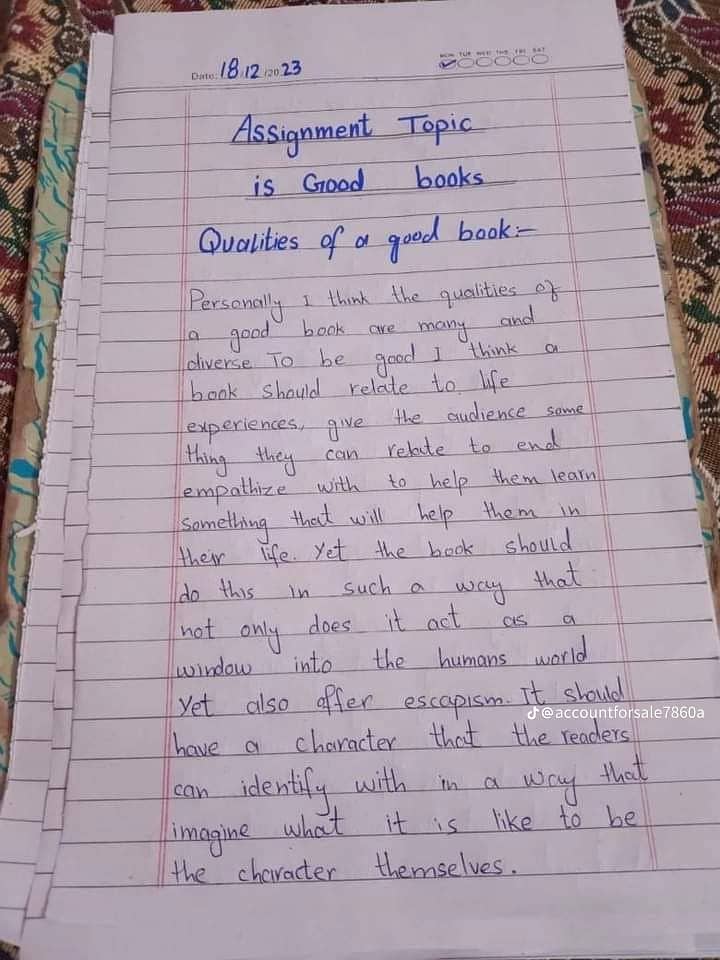 MON TUE WED THE FRI SAT
Date: 18 12 /20 23
Assignment Topic
is Good books
Qualities of a good book:-
Personally I think the qualities of
a good book are many and
diverse To be good I think a
book should relate to life
experiences, give the audience some
thing they can relate to end
empathize with to help them learn
something that will help them in
their life. Yet the book should
do this in such a way that
not only does it act as a
window into the humans world
Yet also offer escapism. It should
@accountforsale7860a
have a character that the readers
can identify with in a way that
imagine what it is like to be
the character themselves.